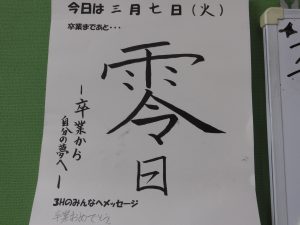 今日は 三月 七日(火)
卒業まであと・・・
零日
ー卒業から
自分の夢へー
3Hのみんなへメッセージ
卒業おめでとう